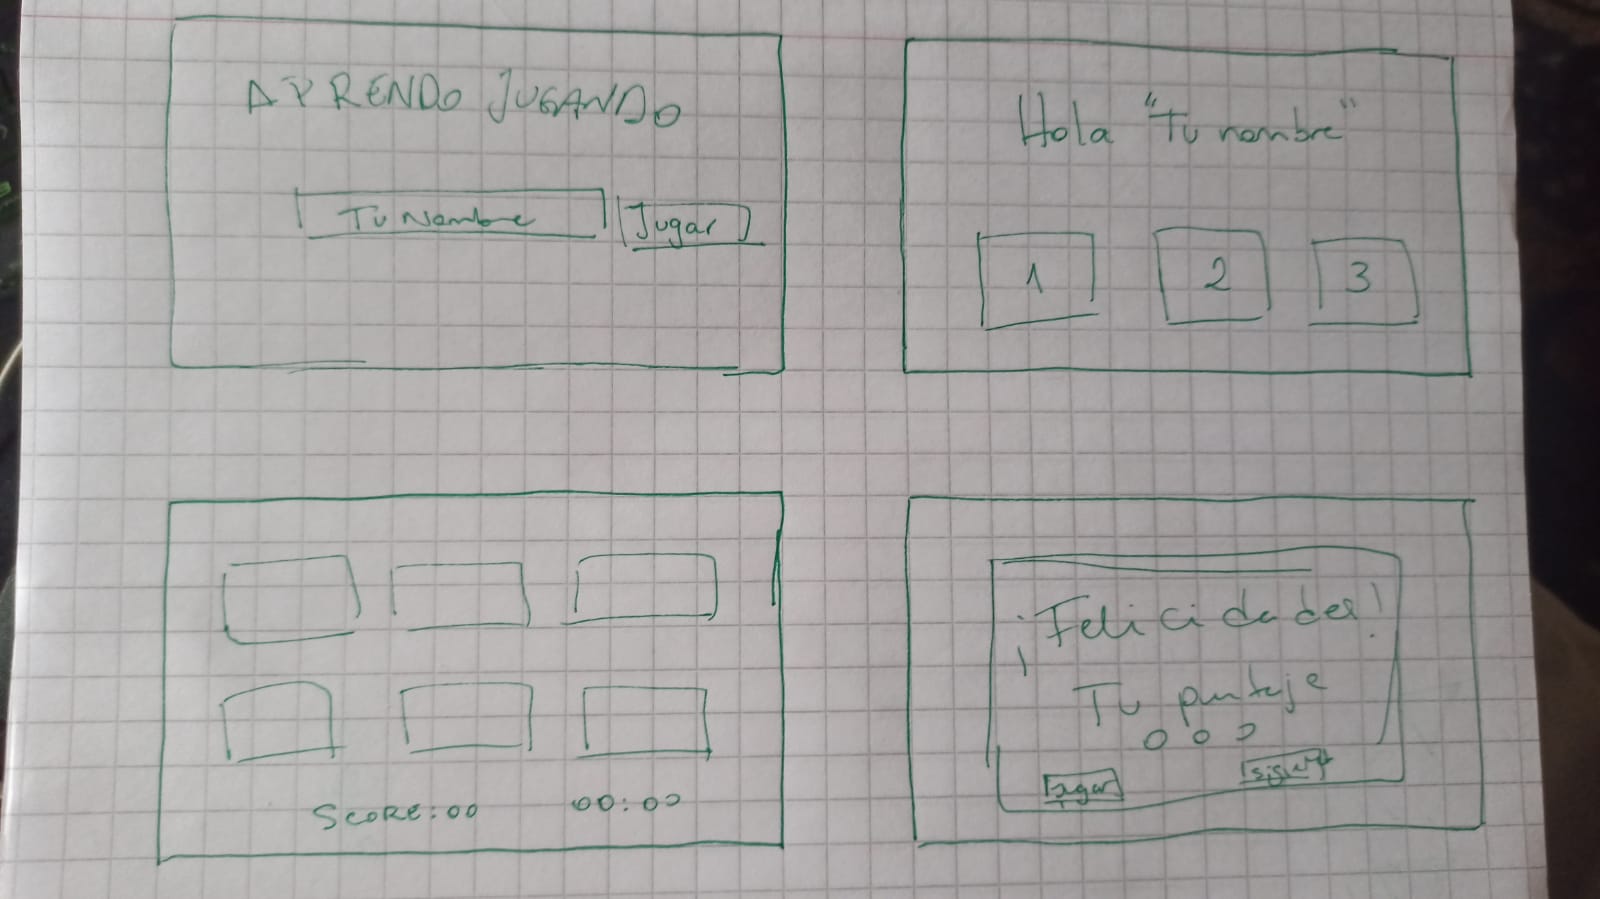 APRENDO JUGANDO
Tu Nombre
Jugar
Hola "Tu nombre"
1
2
3
SCORE:00
00:00
¡Felicidades!
Tu puntaje
000